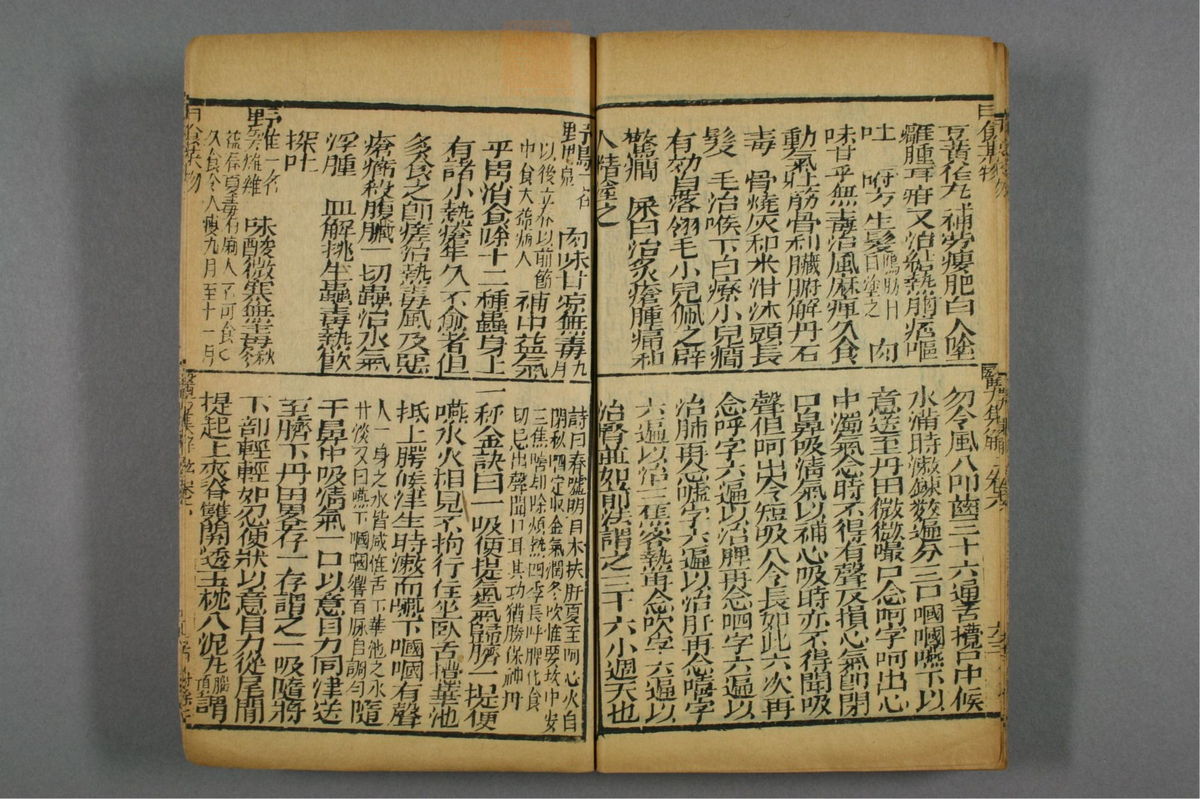 豆黃作丸補勞瘦肥白人塗
癰腫耳疳又治結熱胸痞嘔
吐 生髮鵝肪日日塗之 肉
味甘平無毒治風麻痺久食
動氣壯筋骨利臟腑解丹石
毒 骨燒灰和米泔沐頭長
髮 毛治喉下白療小兒癇
有効自落翎毛小兒佩之辟
驚癇 屎白治灸瘡腫痛和
人精塗之
野鴨一名鳧 肉味甘凉無毒九月
以後立春以前節中食大益病人 補中益氣
平胃消食除十二種蟲身上
有諸小熱瘡年久不愈者但
多食之卽瘥治熱毒風及惡
瘡癤殺腹臟一切蟲治水氣
浮腫 血解挑生蠱毒熱飲
探吐
野雞一名雉 味酸微寒無毒秋冬
益春夏毒有痼人不可食
久食令人瘦九月至十一月
勿令風入叩齒三十六遍舌攪口中候
水滿時漱鍊數遍分三口嘓嘓嚥下以
意送至丹田微微撮口念呵字呵出心
中濁氣念時不得有聲反損心氣卽閉
口鼻吸清氣以補心吸時亦不得聞吸
聲但呵出令短吸入令長如此六次再
念呼字六遍以治脾再念呬字六遍以
治肺再念噓字六遍以治肝再念嘻字
六遍以治三焦客熱再念吹字六遍以
治腎並如前法謂之三十六小週天也
詩曰春噓明目木扶肝夏至呵心火自
閉秋呬定収金氣潤冬吹惟要坎中安
三焦嘻却除煩熱四季長呼脾化食
切忌出聲聞口耳其功猶勝保神丹
一秤金訣曰一吸便提氣氣歸臍一提便
嚥水火相見不拘行住坐臥舌攪華池
抵上腭候津生時漱而嚥下嘓嘓有聲
人一身之水皆咸惟舌下華池之水
甘淡又曰嚥下嘓嘓響百脉自調勻 隨
于鼻中吸清氣一口以意目力同津送
至臍下丹田畧存一存謂之一吸隨將
下部輕輕如忍便狀以意目力從尾閭
提起上夾脊雙關透玉枕入泥丸腦頂謂